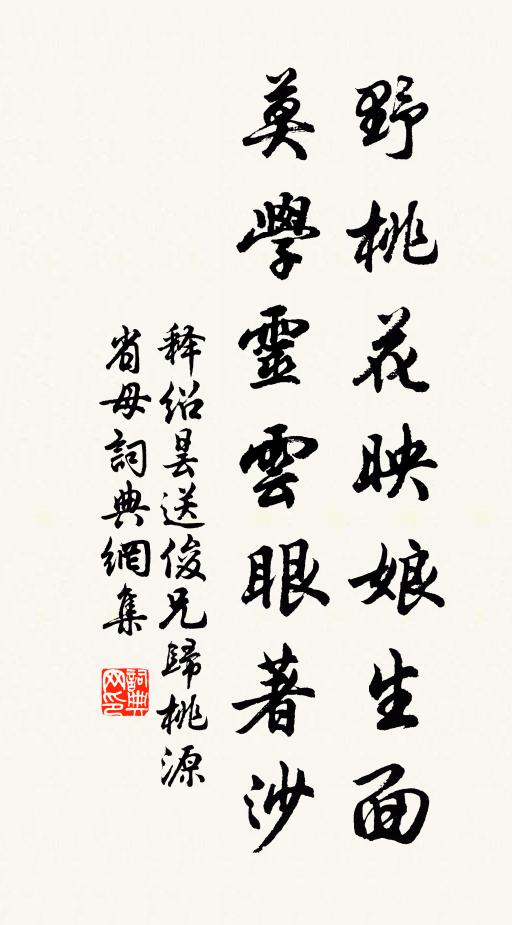 野桃花映娘生面
莫學靈雲眼著沙
释绍昙送俊兄歸桃源
省母詞典網集
詞典网印